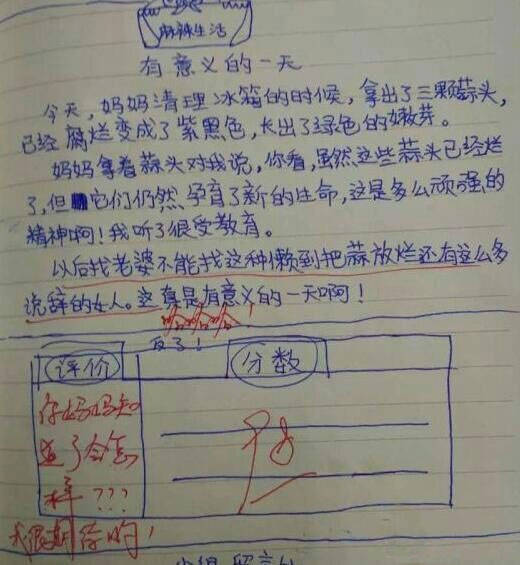 麻辣生活
有意义的一天
今天,妈妈清理冰箱的时候,拿出了三颗蒜头,
已经腐烂变成了紫黑色,长出了绿色的嫩芽。
妈妈拿着蒜头对我说,你看,虽然这些蒜头已经烂
了,但它们仍然孕育了新的生命,这是多么顽强的
精神啊!我听了很受教育。
以后找老婆不能找这种懒到把蒜放烂还有这么多
说辞的女人。这真是有意义的一天啊!
哈哈哈!
反了!
评价
分数
你妈妈知
道了会怎
样???
我很期待哟!
优